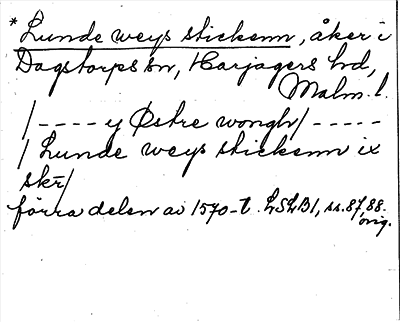 * Lunde weys stickenn, åker i
Dagstorps sn, Harjagers hd,
Malm. l.
/---- y Østre wongh/-----
/ Lunde weys stickenn ix
skr̄/
förra delen av 1570-t. LSLB1, ss. 87, 88.
orig.